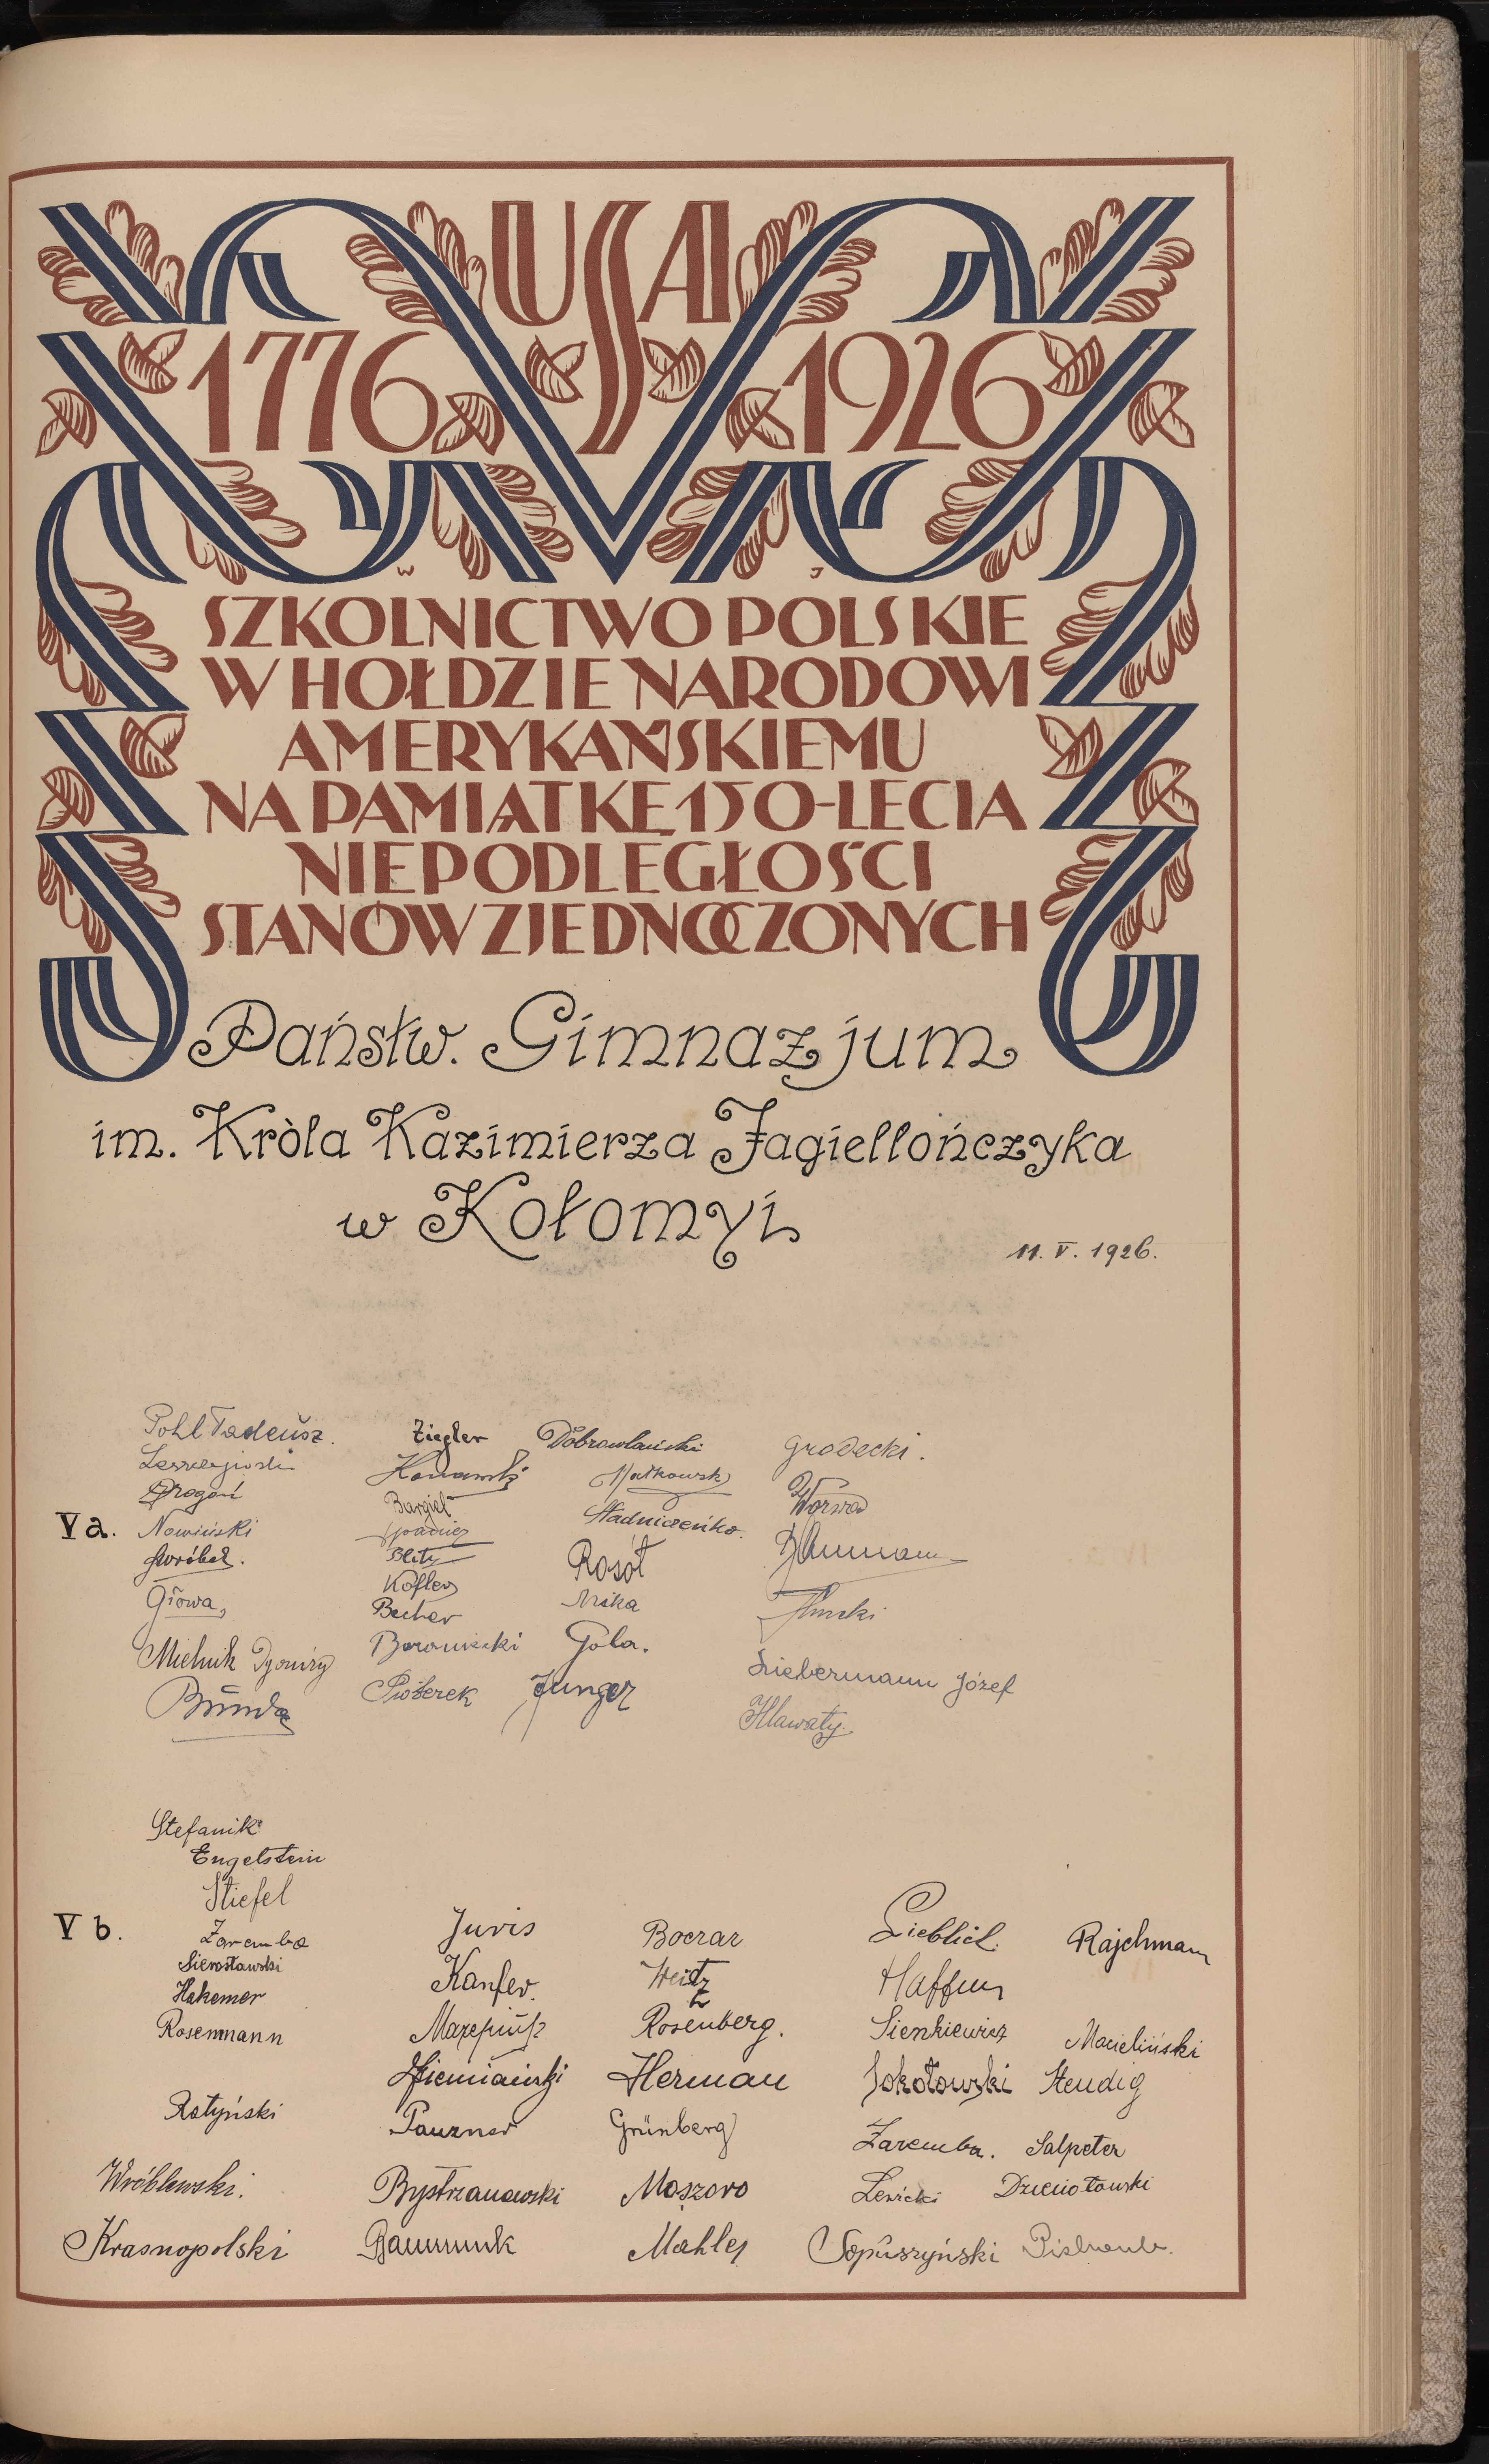 USA
1776 1926
W J
SZKOLNICTWO POLSKIE
W HOŁDZIE NARODOWI
AMERYKAŃSKIEMU
NA PAMIĄTKĘ 150-LECIA
NIEPODLEGŁOŚCI
STANÓW ZJEDNOCZONYCH
Państw. Gimnazjum
im. Kròla Kazimierza Jagiellończyka
w Kołomyi
11. V. 1926.
V a.
Pohl Tadeusz.
Drogoń
Nowiński
Wróbel.
Głowa,
Mielnik
Ziegler
Bargiel
Blitz
Kofler
Becher
Pioterek
Dobrowlański
Nadniczeńko.
Rosół
Mika
Gola.
Junger
Grodecki.
Worwa
Liebermann Józef
Hlawaty.
V b.
Stefanik
Engelstein
Stiefel
Zaremba
Sierosławski
Hakemer
Rosenmann
Ratyński
Wróblewski.
Krasnopolski
Juris
Kanfer.
Pauzner
Bystrzanowski
Boczar
Weitz
Rosenberg.
Herman
Grünberg
Moszoro
Mahler
Lieblich
Sienkiewicz
Sokołowski
Zaremba.
Lewicki
Sopuszyński
Rajchmann
Macieliński
Steudig
Salpeter